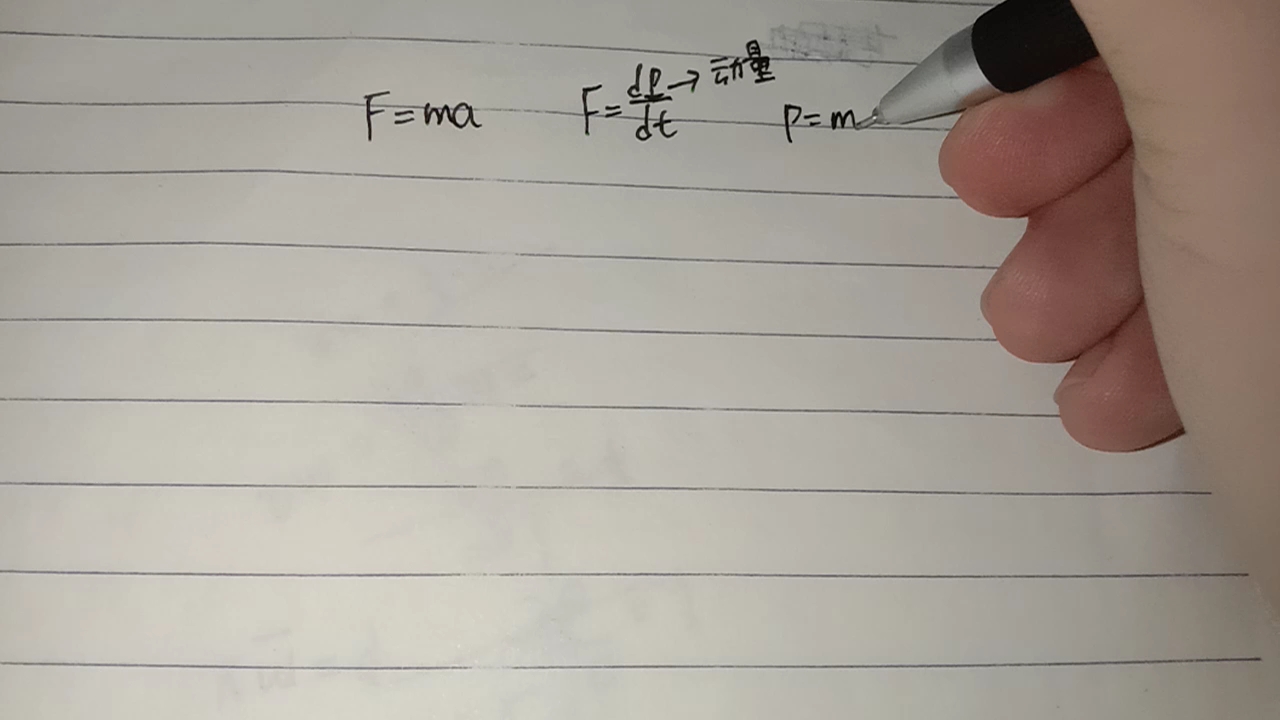 F=ma F=dp/dt→动量 P=m